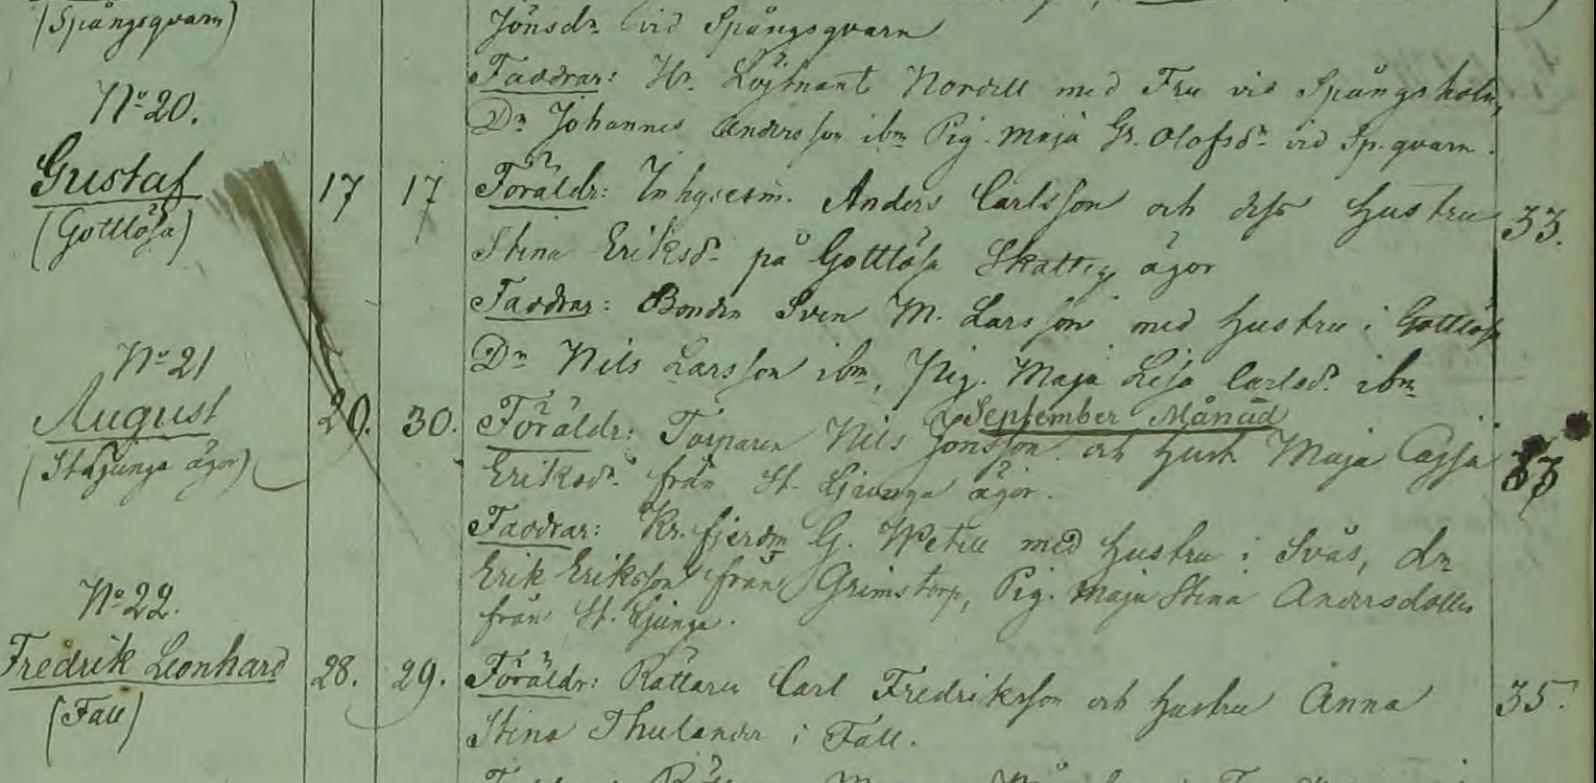 (Spångsqvarn)
Jönsdr. vid Spångsqvarn
Faddrar: Hr. Löjtnant Nordell med Fru vid Spångsholm,
Dn Johannes Andersson ibm Pig. Maja Gr. Olofsdr vid Sp. qvarn.
No 20.
Gustaf
(Gottlösa)
17 17
Föräldr: Inhysesm. Anders Carlsson och dess hustru
33.
Stina Eriksdr på Gottlösa Skatteg ägor
Faddrar: Bonden Sven M. Larsson med hustru i Gottlösa
Dn Nils Larsson ibm, Pig. Maja Lisa Carlsdr. ibm
September Månad
No 21
August
(St. Ljunga ägor)
29. 30.
Föräldr: Torparen Nils Jonsson och hust. Maja Cajsa
33
Eriksdr. från St. Ljunga ägor.
Faddrar: Kr. fjerdm G. Wetell med hustru i Svås, dn
Erik Eriksson från Grimstorp, Pig. Maja Stina Andersdotter
från St. Ljunga.
No 22.
Fredrik Leonhard
(Fall)
28. 29.
Föräldr: Rättaren Carl Fredriksson och hustru Anna
35.
Stina Thulander i Fall.